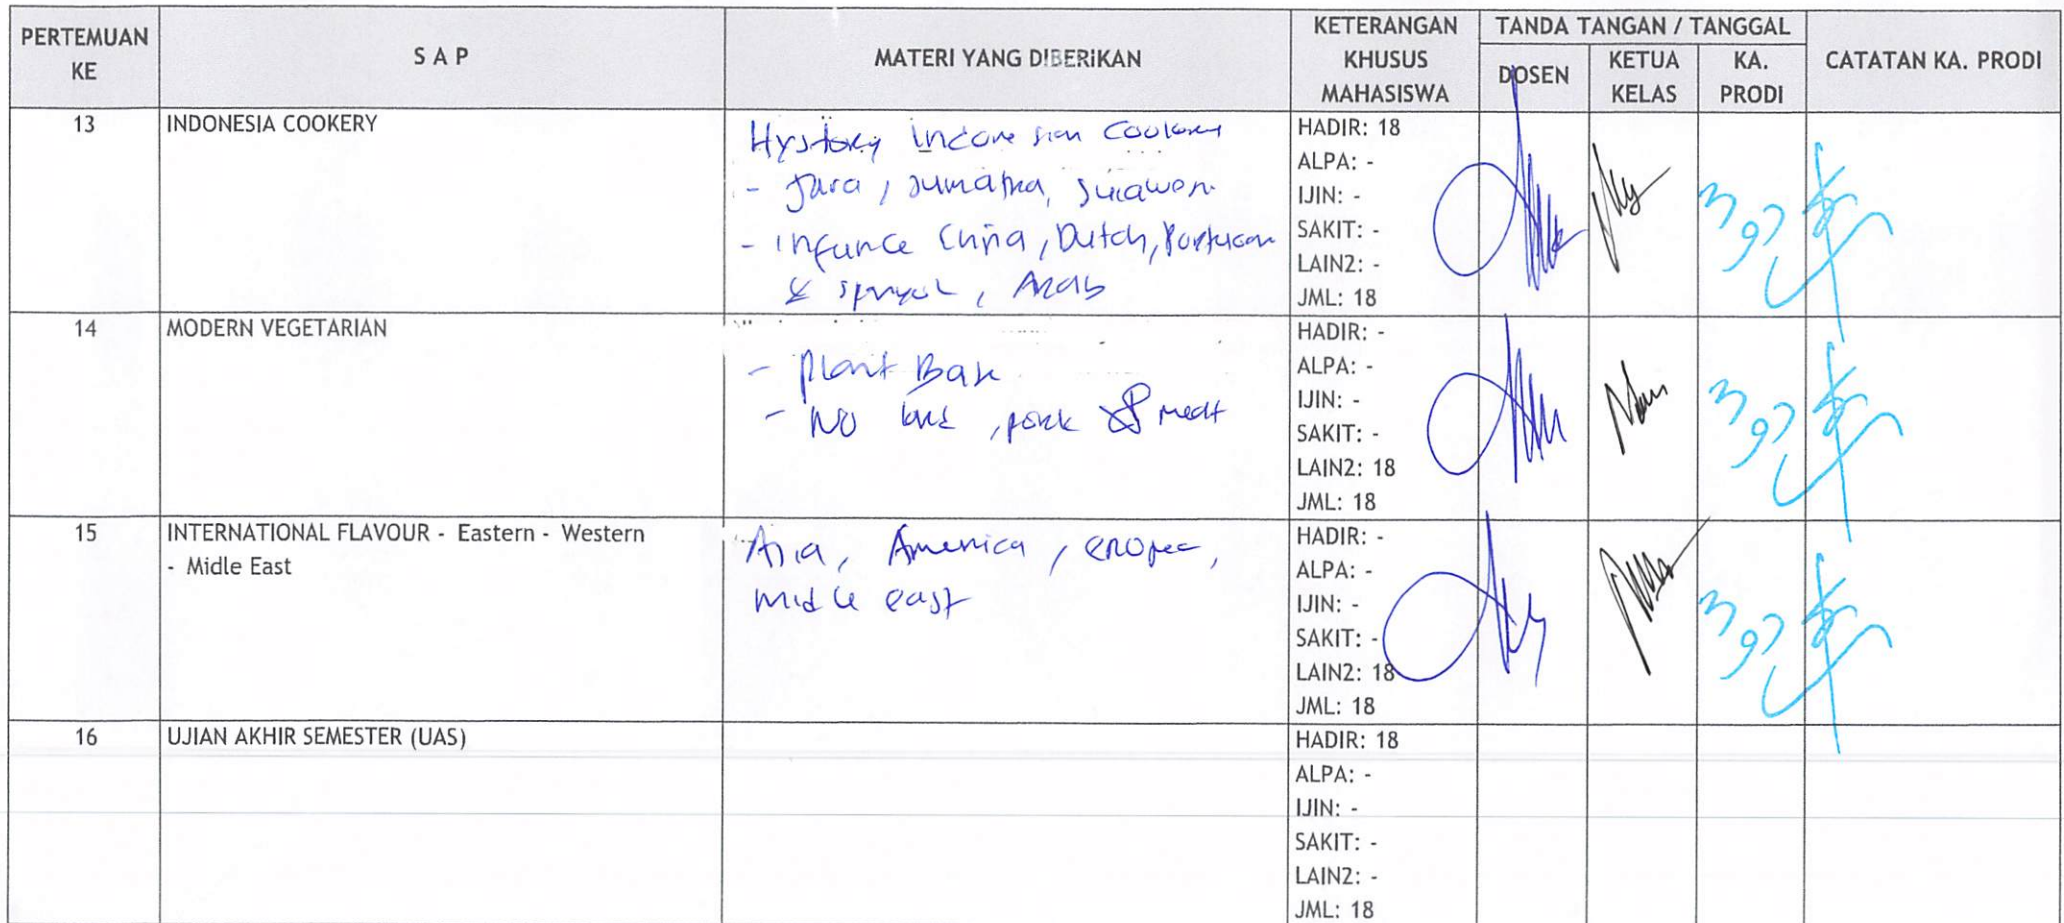 PERTEMUAN KE
S A P
MATERI YANG DIBERIKAN
KETERANGAN KHUSUS MAHASISWA
TANDA TANGAN / TANGGAL
DOSEN
KETUA KELAS
KA. PRODI
CATATAN KA. PRODI
13
INDONESIA COOKERY
Hystory Indonesian Cookery
- Java, Sumatra,
- China, Dutch,
& , Arab
HADIR: 18
ALPA: -
IJIN: -
SAKIT: -
LAIN2: -
JML: 18
14
MODERN VEGETARIAN
- Plant
- No , pork & meat
HADIR: -
ALPA: -
IJIN: -
SAKIT: -
LAIN2: 18
JML: 18
15
INTERNATIONAL FLAVOUR - Eastern - Western
- Midle East
Asia, America,
midle east
HADIR: -
ALPA: -
IJIN: -
SAKIT: -
LAIN2: 18
JML: 18
16
UJIAN AKHIR SEMESTER (UAS)
HADIR: 18
ALPA: -
IJIN: -
SAKIT: -
LAIN2: -
JML: 18